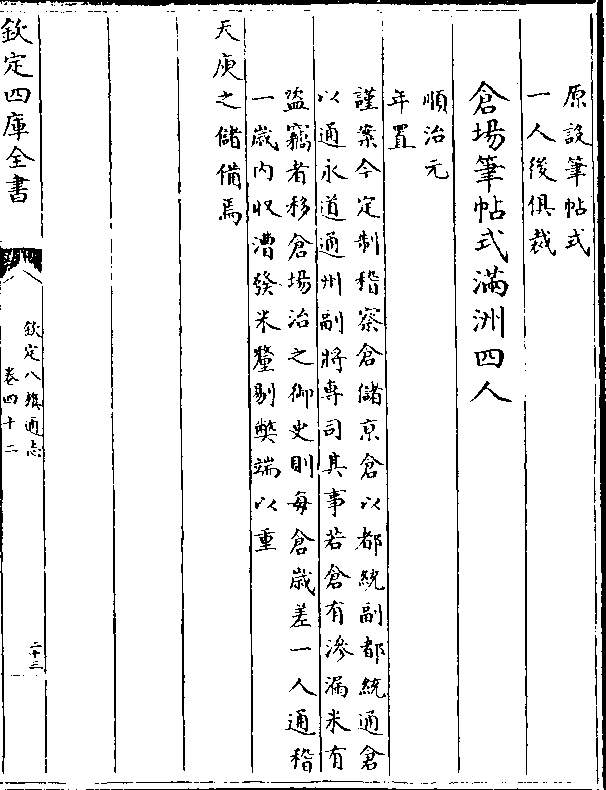 原設筆帖式
一人後俱裁
倉場筆帖式滿洲四人
順治元
年置
謹案今定制稽察倉儲京倉以都統副都統通倉
以通永道通州副將専司其事若倉有滲漏米有
盜竊者移倉場治之御史則每倉歲差一人通稽
一歲内収漕發米釐剔弊端以重
天庾之儲備焉
欽定四庫全書
欽定八旗通志
卷四十二
二十三